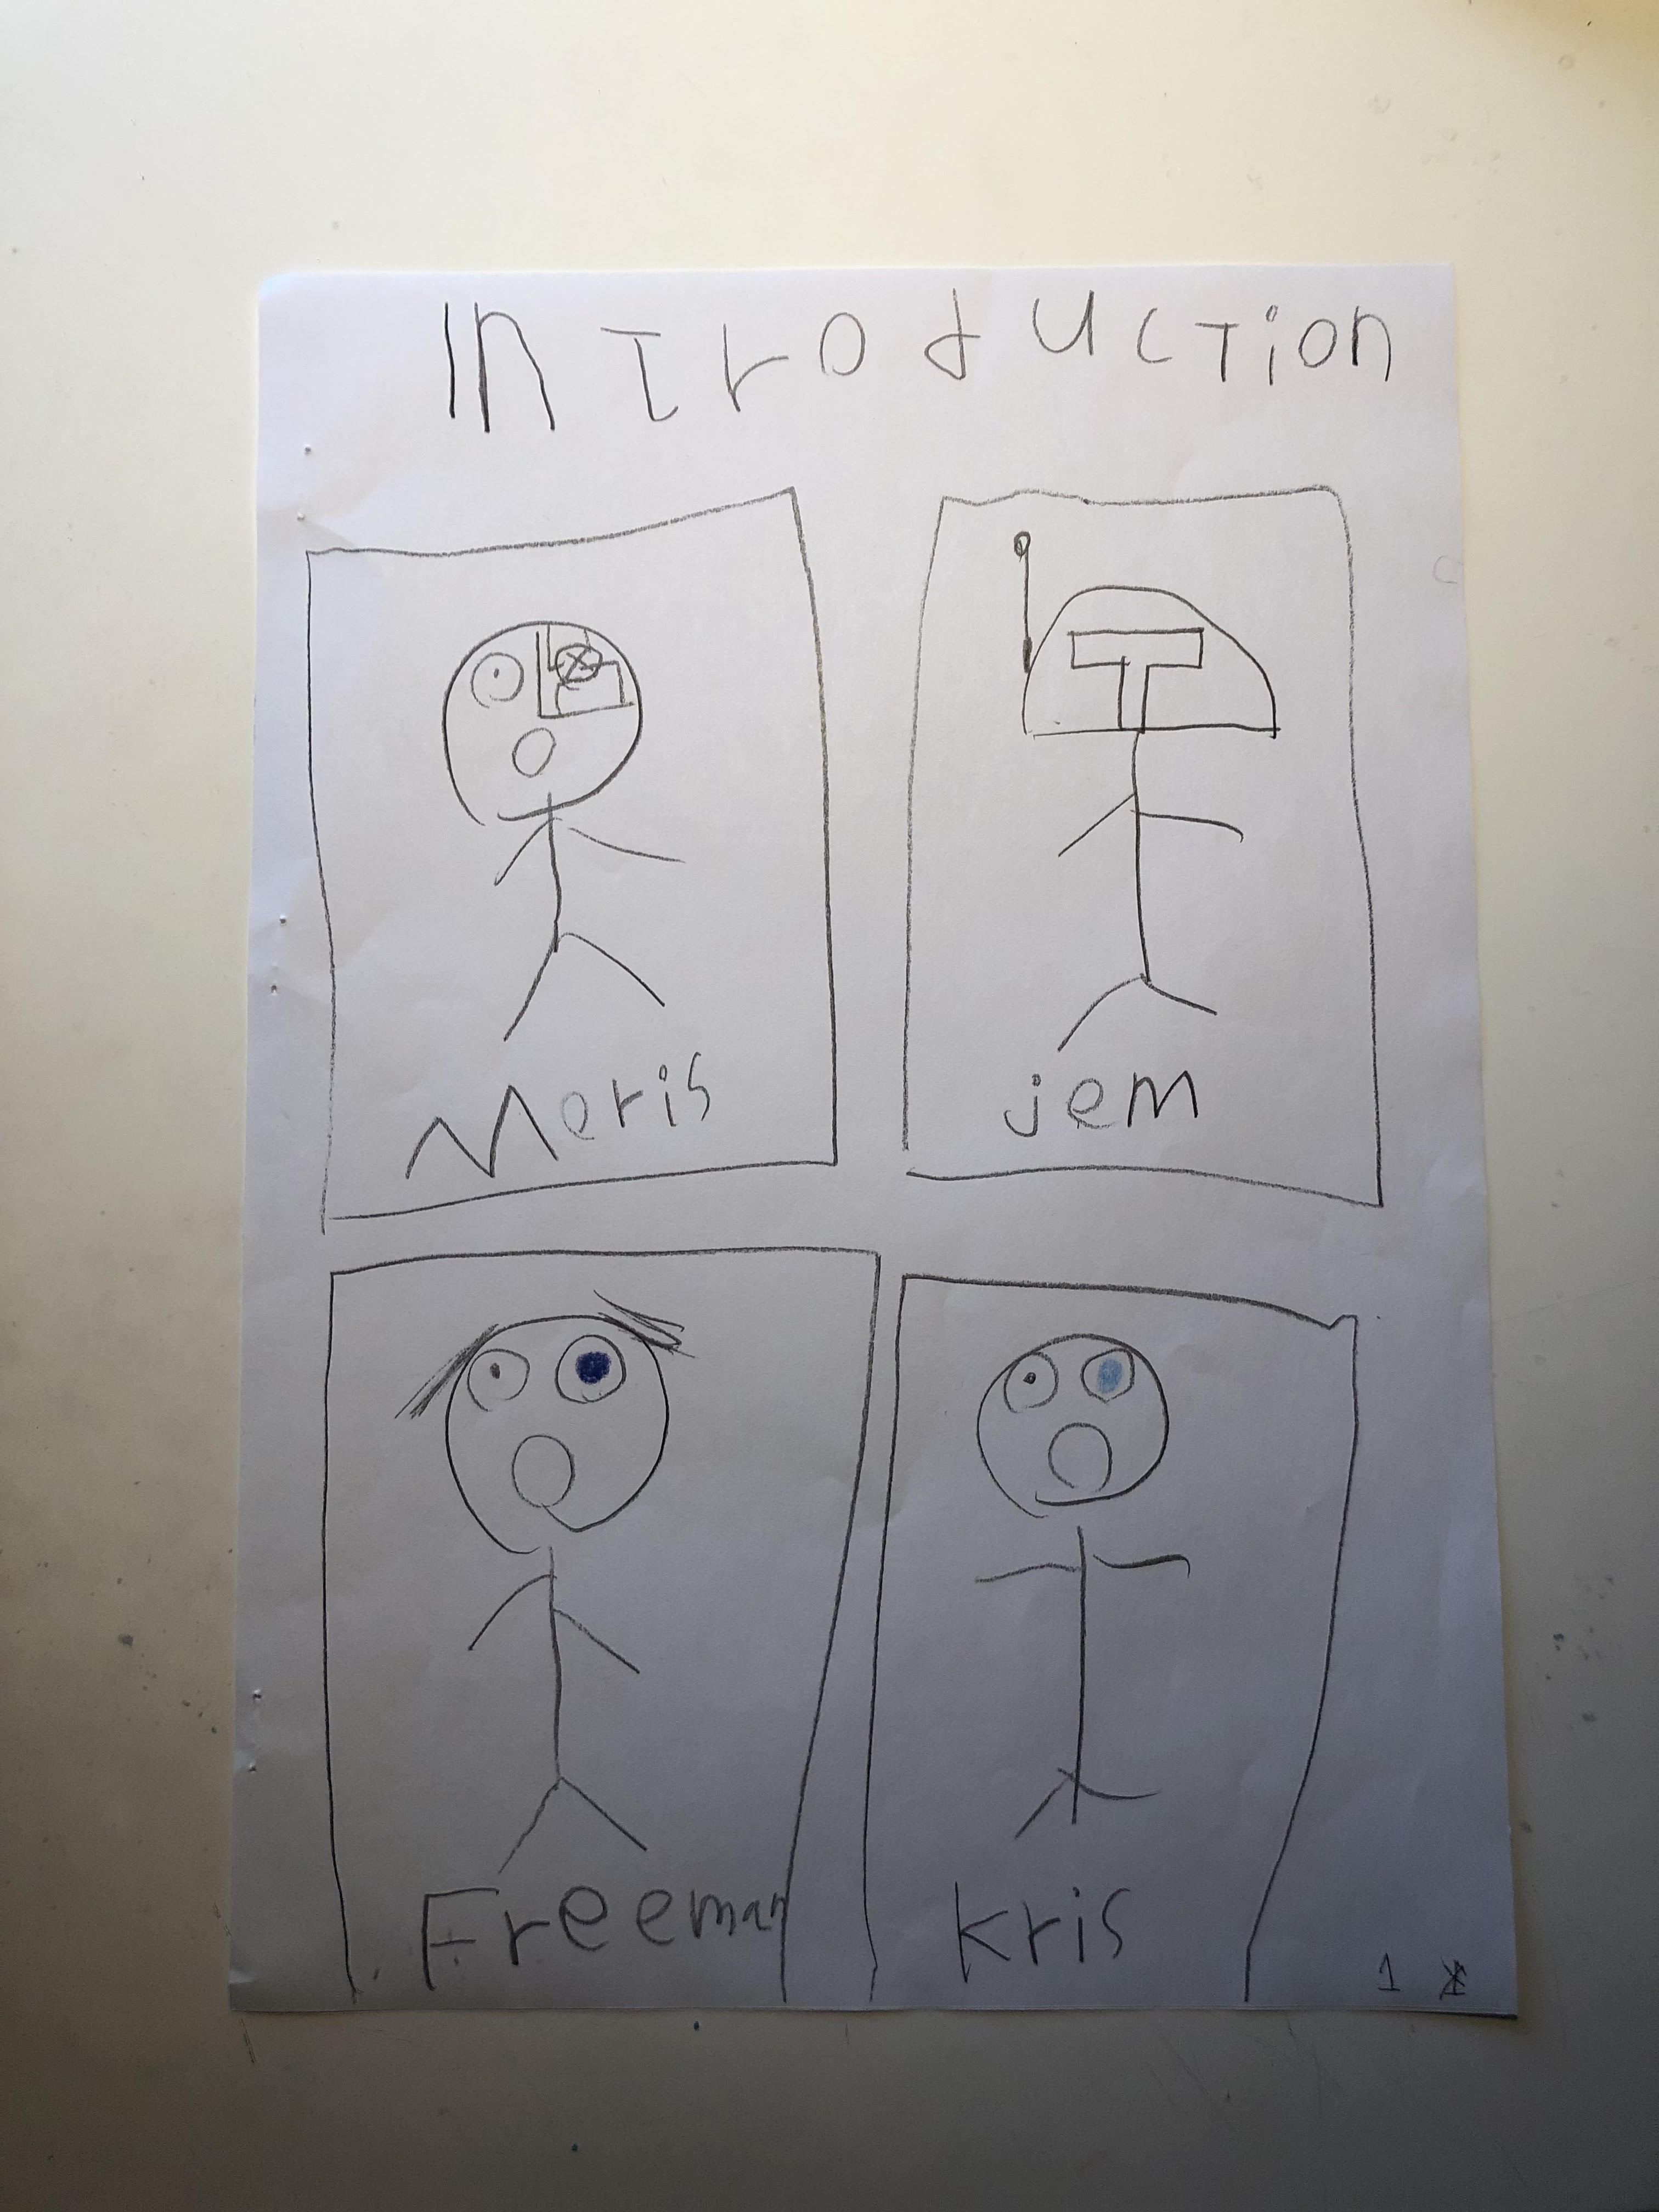 Introduction
Meris
jem
Freeman
Kris
1